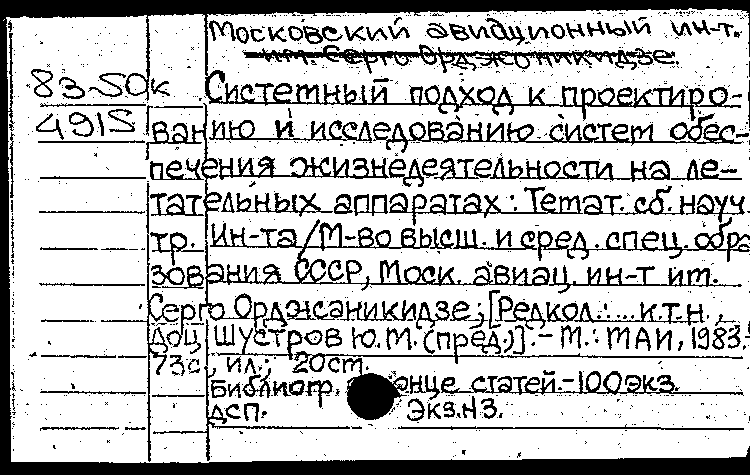 Московский авиационный ин-т.
им. Серго Орджоникидзе.
83-50к Системный подход к проектиро-
4915 ванию и исследованию систем обес-
печения жизнедеятельности на ле-
тательных аппаратах: Темат. сб. науч
тр. Ин-та/М-во высш. и сред. спец. обра
зования СССР, Моск. авиац. ин-т им.
Серго Орджаникидзе; [Редкол.: ... к.т.н.,
доц. Шустров Ю.М. (пред.)]. - М.: МАИ, 1983.-
73с., ил.; 20см.
Библиогр. в конце статей. - 100экз.
ДСП. Экз.N3.